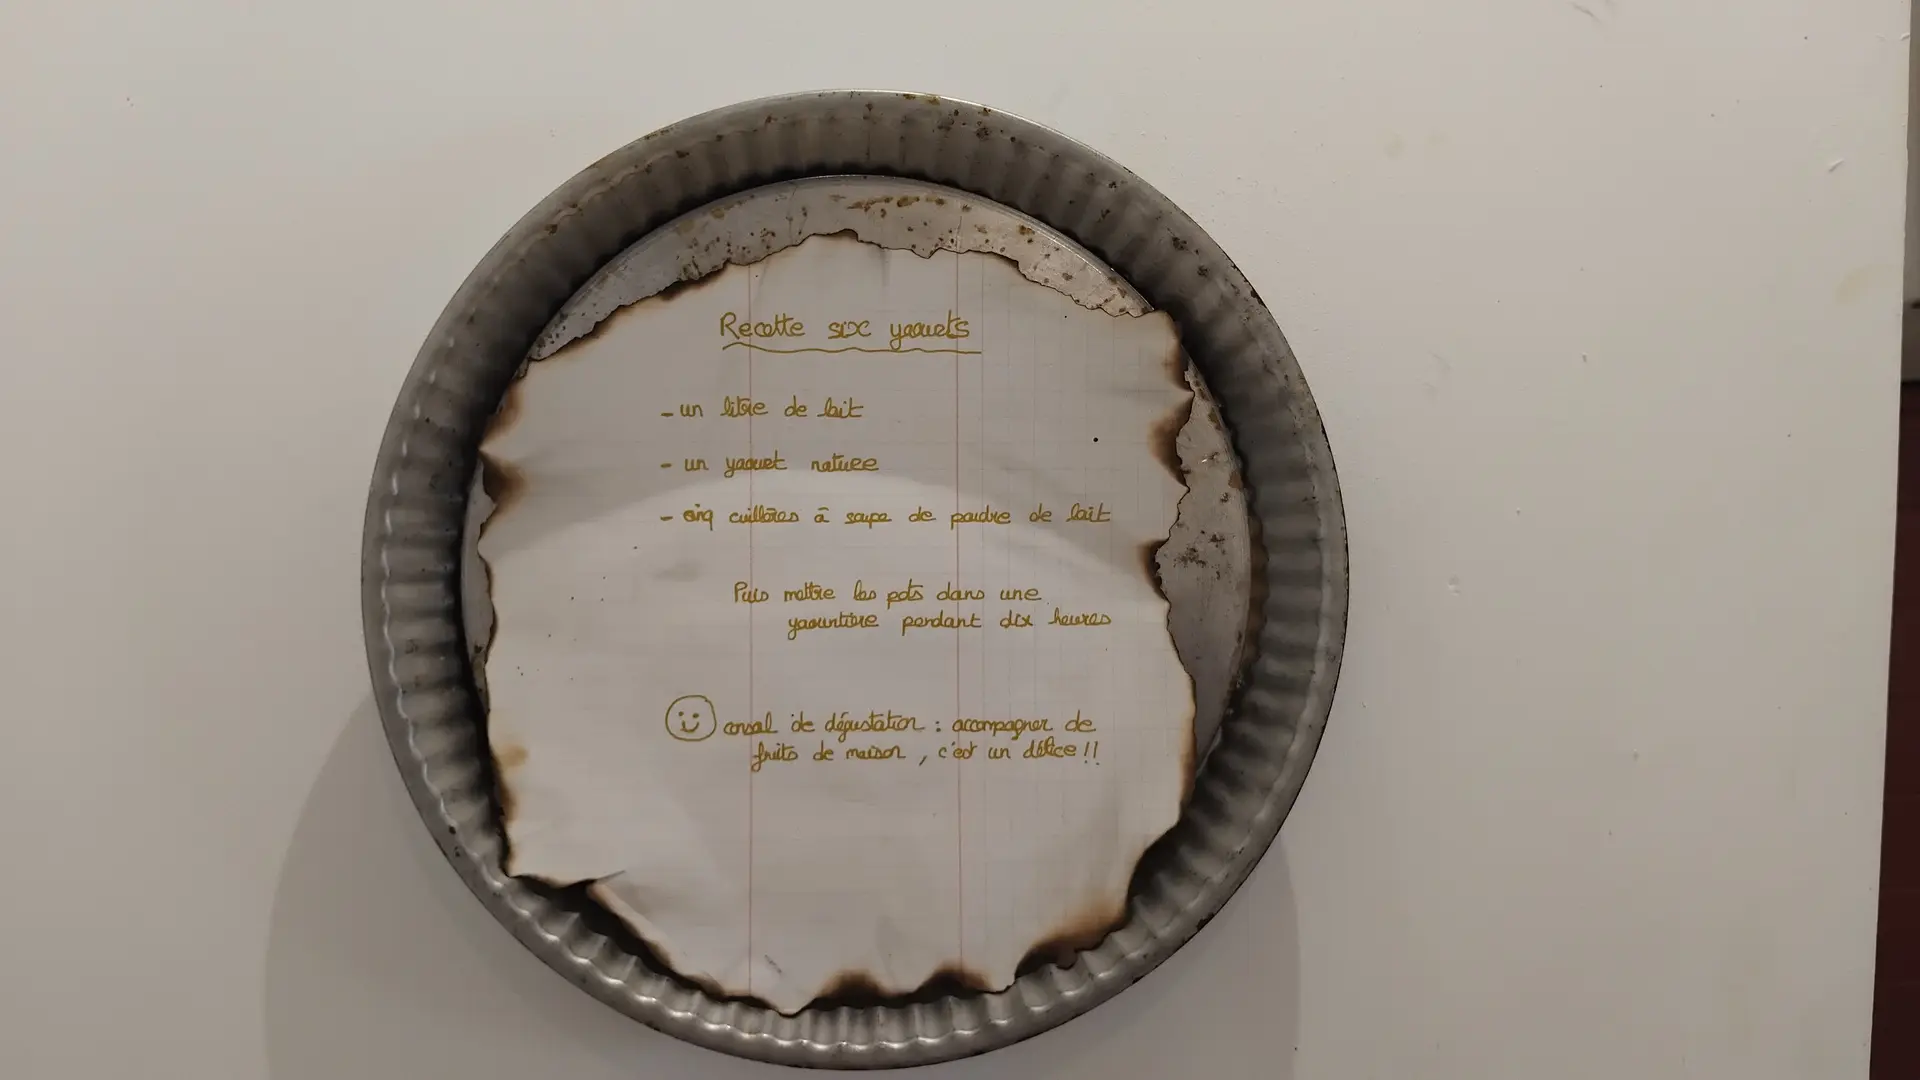 Recette six yaouets
- un litre de lait
- un yaouet nature
- cinq cuillères à soupe de poudre de lait
Puis mettre les pots dans une
yaourtière pendant dix heures
conseil de dégustation : accompagner de
fruits de maison, c'est un délice !!